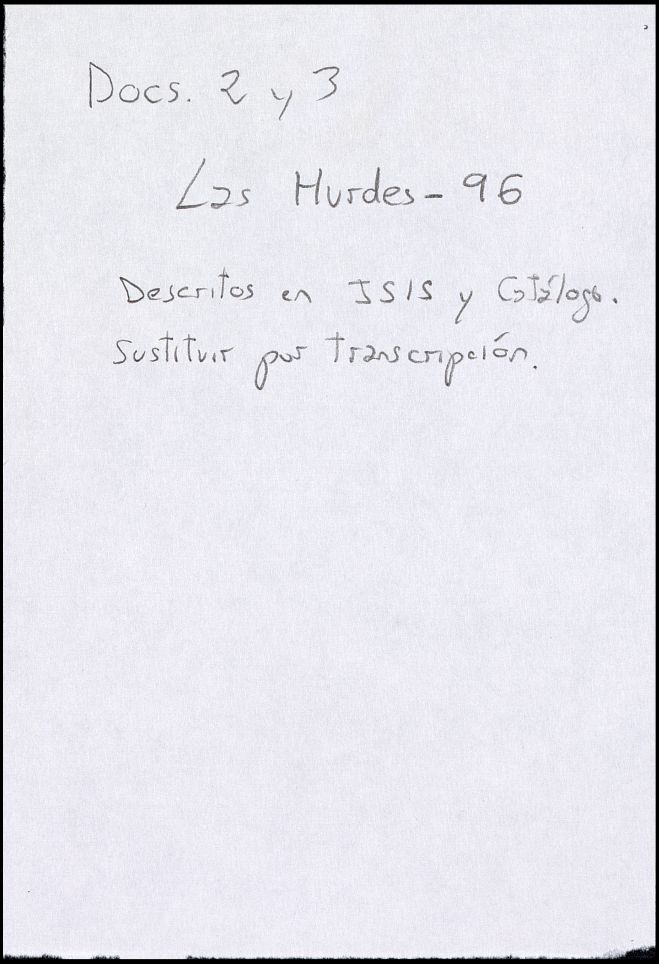 Docs. 2 y 3
Las Hurdes - 96
Descritos en ISIS y Catálogo.
Sustituir por transcripción.